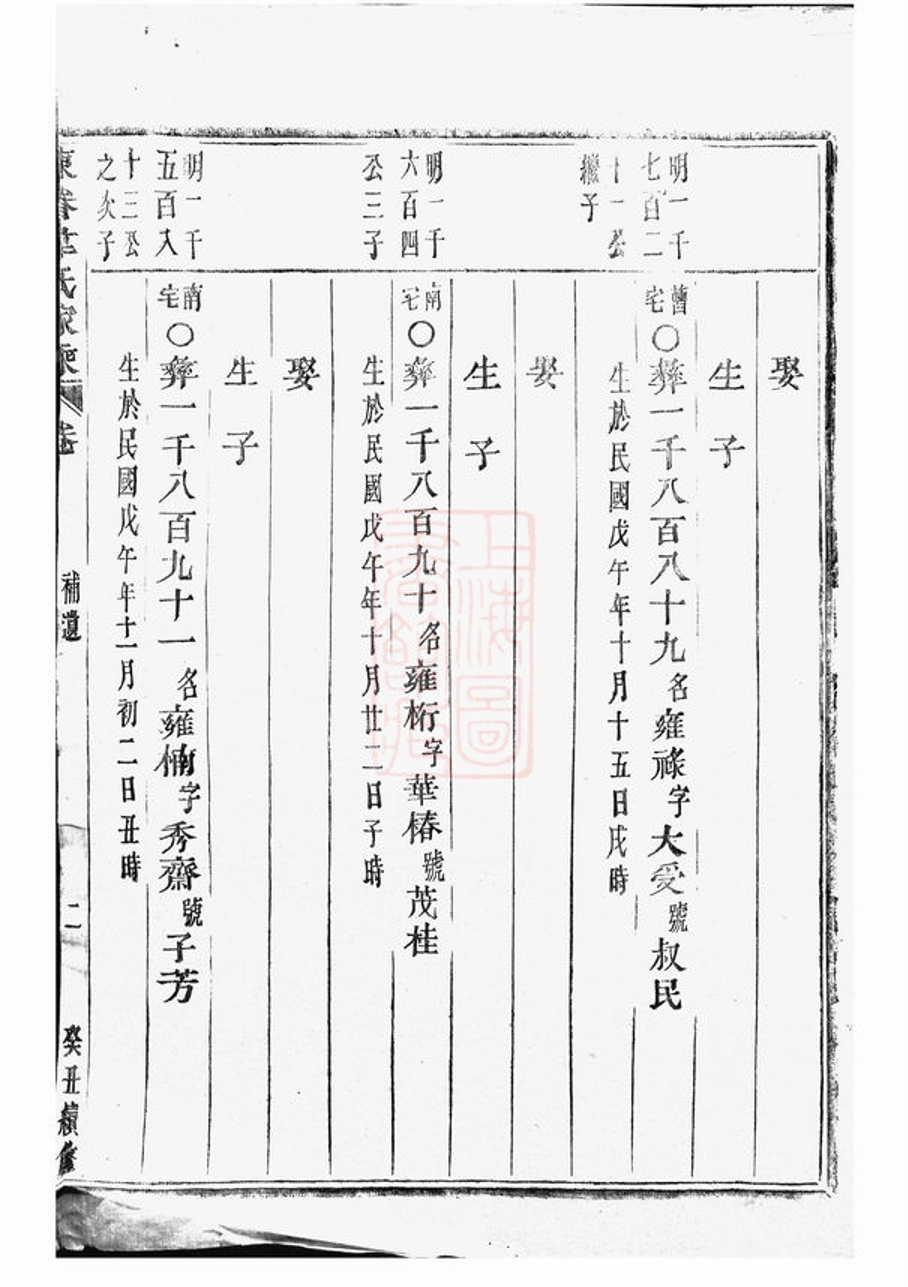 娶
生子
明一千
七百二
十一公
繼子
舊宅
〇彝一千八百八十九名雍祿字大受號叔民
生於民國戊午年十月十五日戌時
娶
生子
明一千
六百四
公三子
南宅
〇彝一千八百九十名雍桁字華椿號茂桂
生於民國戊午年十月廿二日子時
娶
生子
明一千
五百八
十三公
之次子
南宅
〇彝一千八百九十一名雍楠字秀齋號子芳
生於民國戊午年十一月初二日丑時
氏家乘
補遺
二
癸丑續修
上海圖書館藏